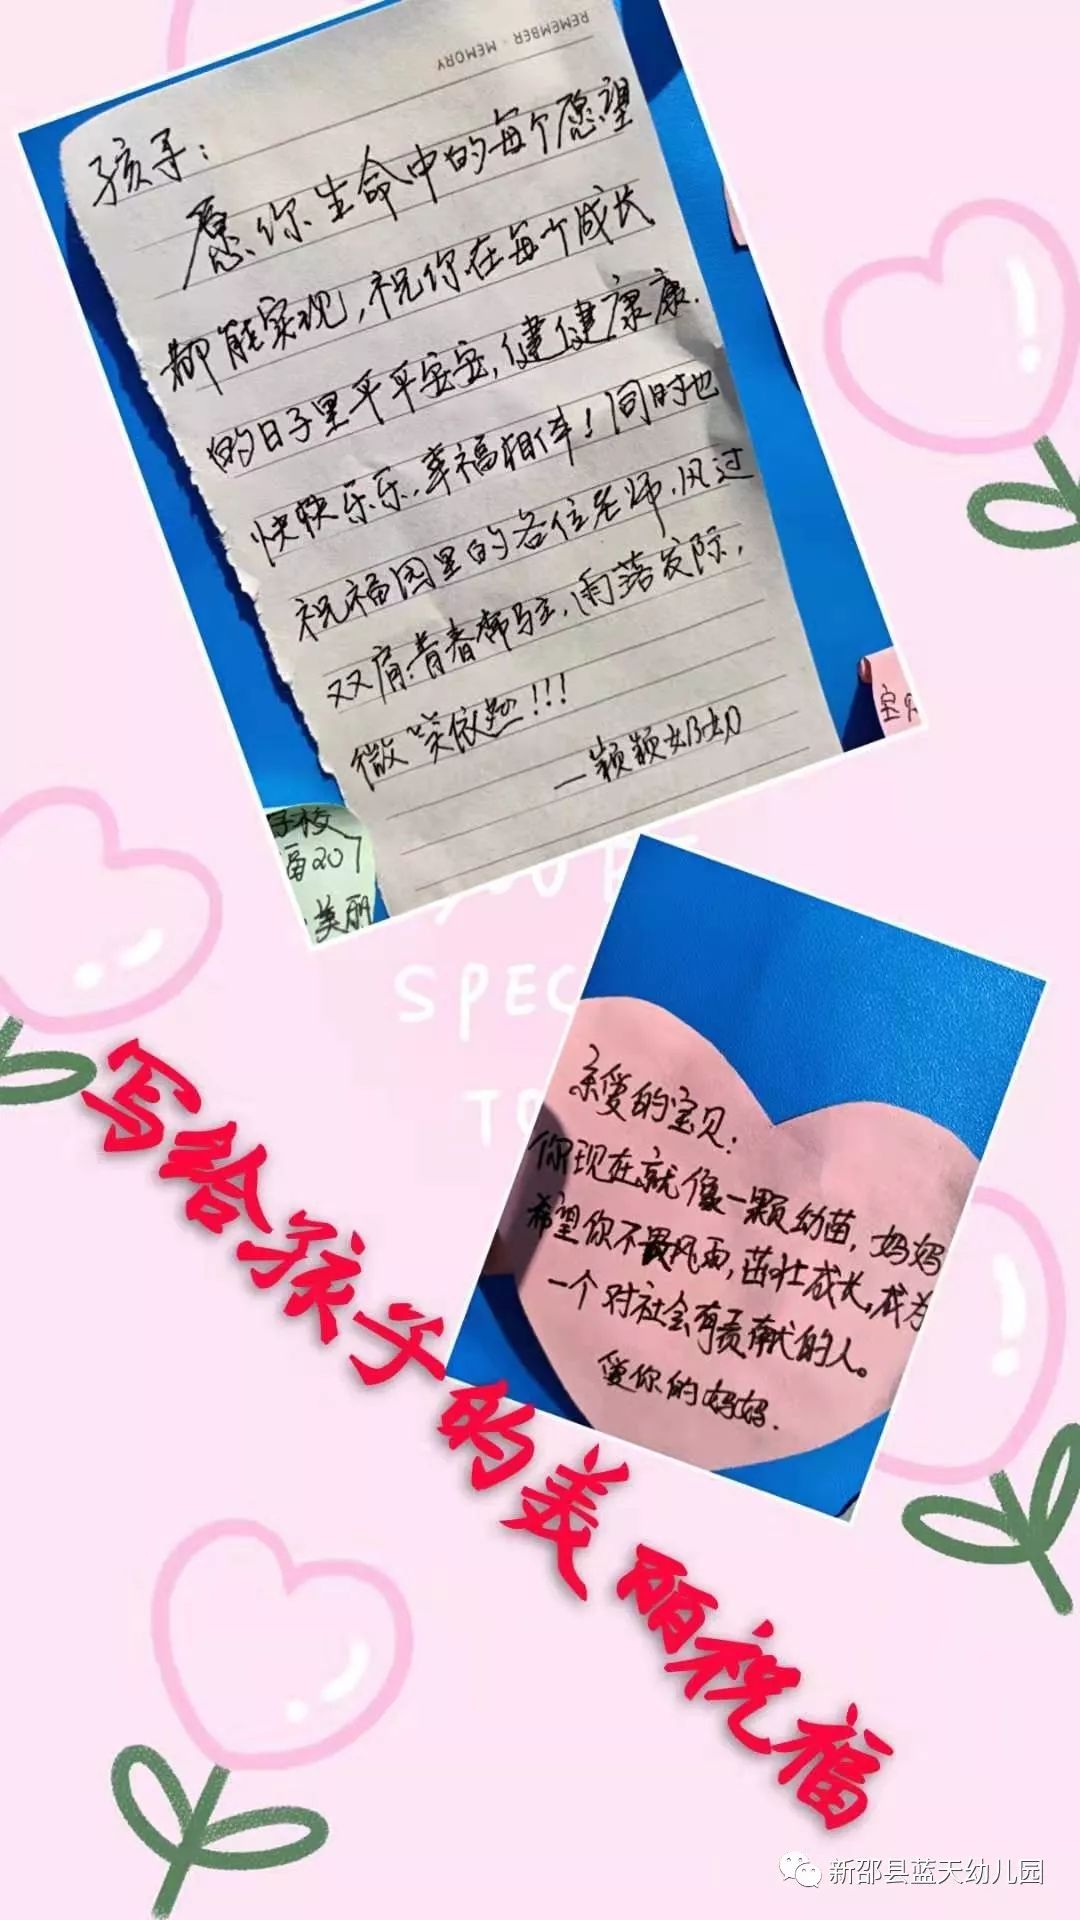 REMEMBER · MEMORY
孩子:
愿你生命中的每个愿望
都能实现,祝你在每个成长
的日子里平平安安,健健康康.
快快乐乐.幸福相伴!同时也
祝福园里的各位老师,风过
双肩.青春常驻,雨落发际,
微笑依然!!!
—颖颖奶奶
子校
福207
美丽
宝贝
SPEC
TO
亲爱的宝贝:
你现在就像一颗幼苗,妈妈
希望你不畏风雨,茁壮成长,成为
一个对社会有贡献的人。
爱你的妈妈.
写给孩子的美丽祝福
新邵县蓝天幼儿园